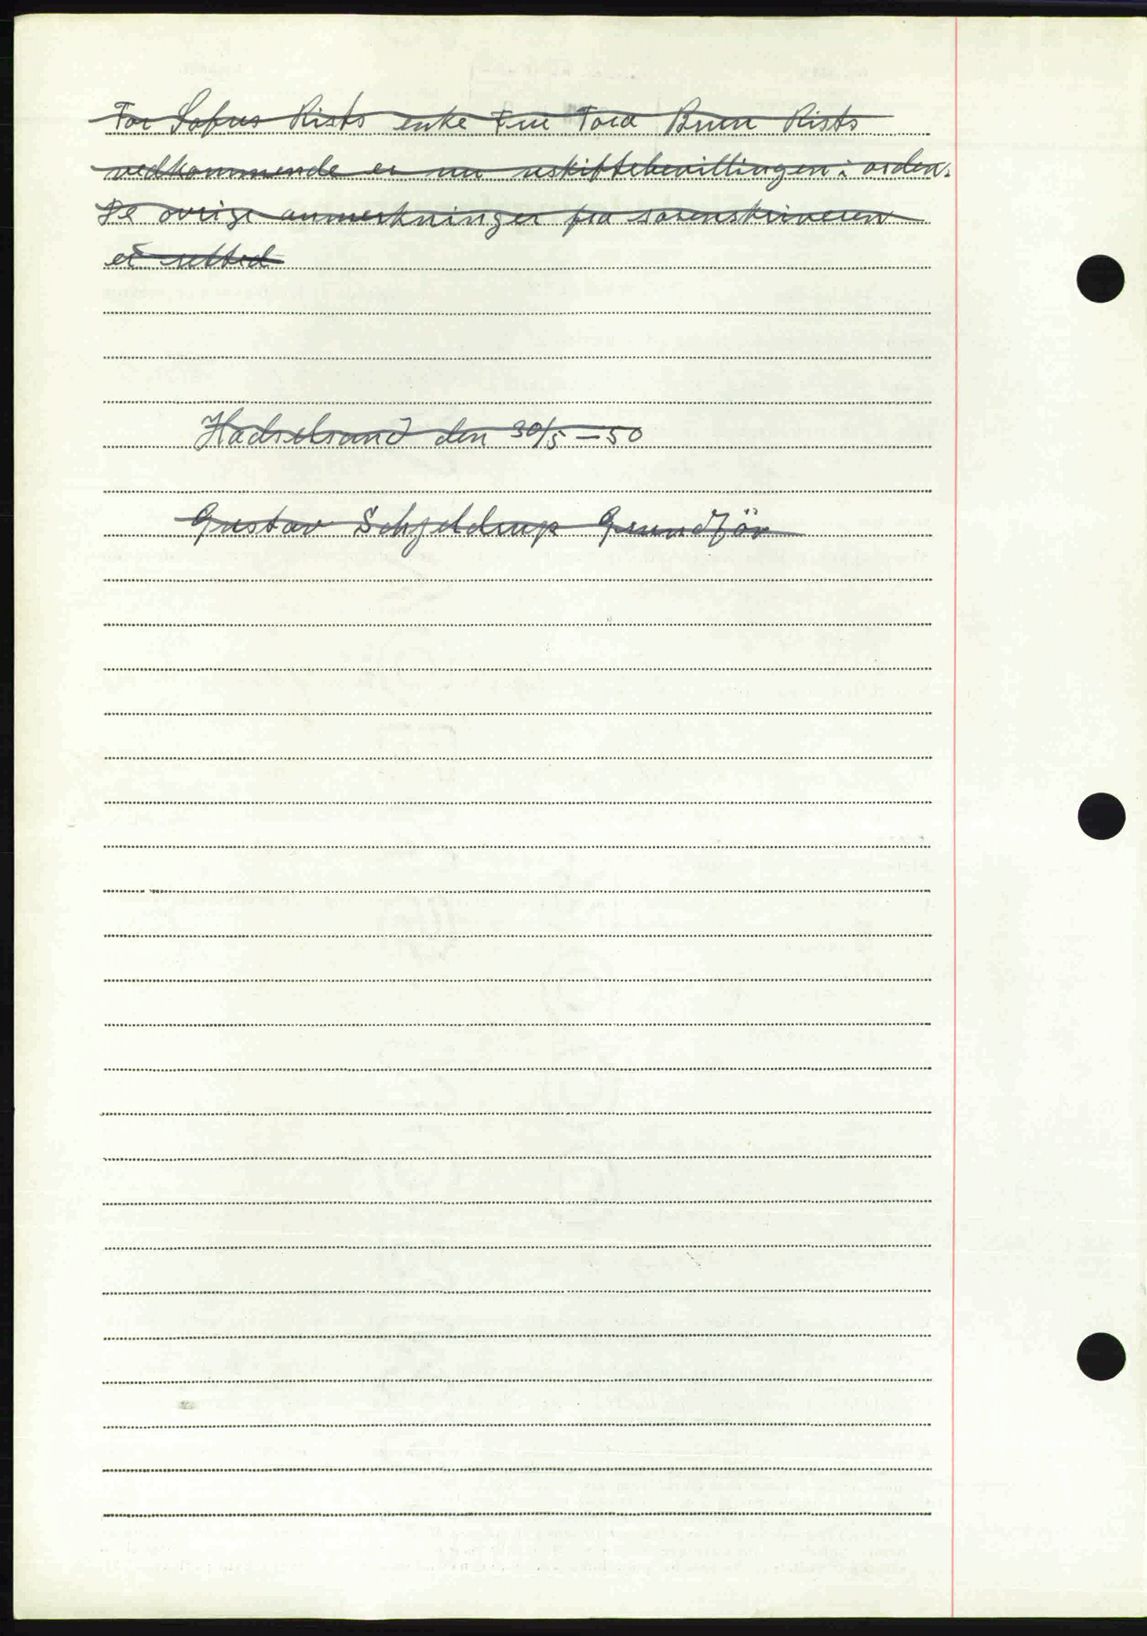 For Sofus Rists enke Fru Tora Brun Rists
vedkommende er nu uskiftebevillingen i orden.
De øvrige anmerkninger fra sorenskriveren
er rettet
Hadselsand den 30/5 – 50
Gustav Schjelderup Grundför